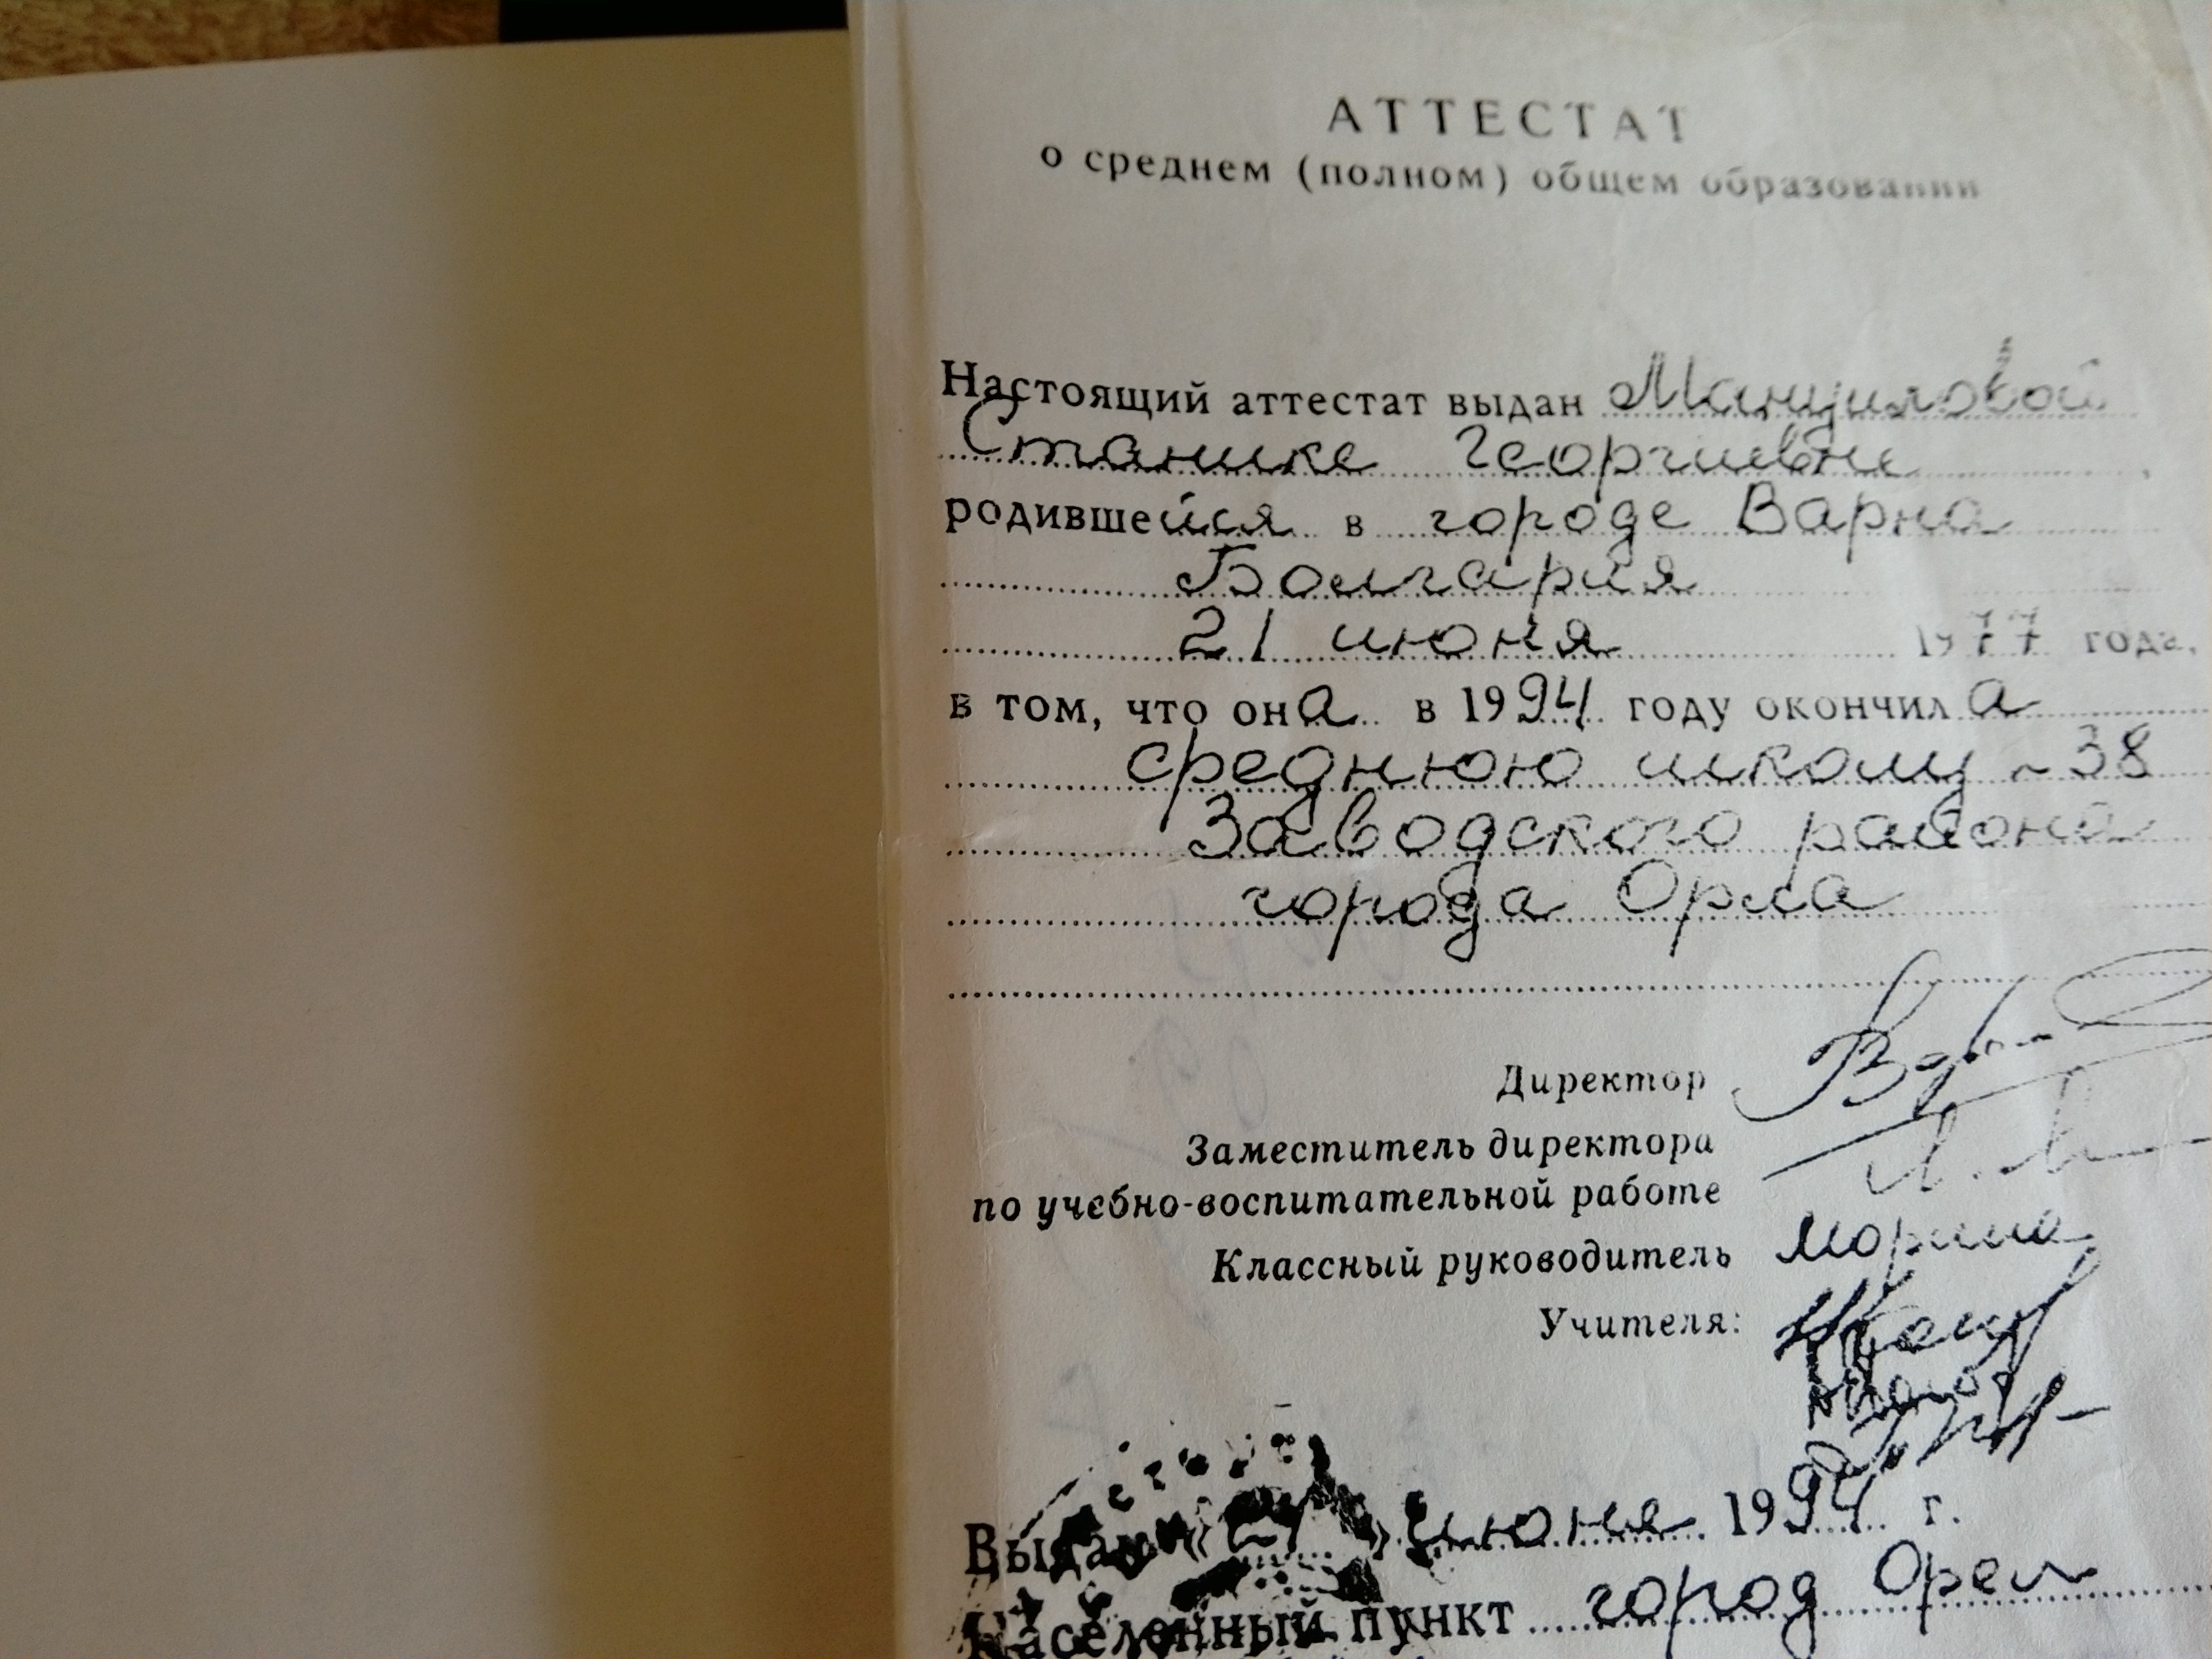 АТТЕСТАТ
о среднем (полном) общем образовании
Настоящий аттестат выдан
Станике Георгиевне,
родившейся в городе Варна
Болгария
21 июня 1977 года,
в том, что она в 1994 году окончила
среднюю школу ~ 38
Заводского района
города Орла
Директор
Заместитель директора
по учебно-воспитательной работе
Классный руководитель
Учителя:
Выдан « » июня 1994 г.
Населенный пункт город Орел